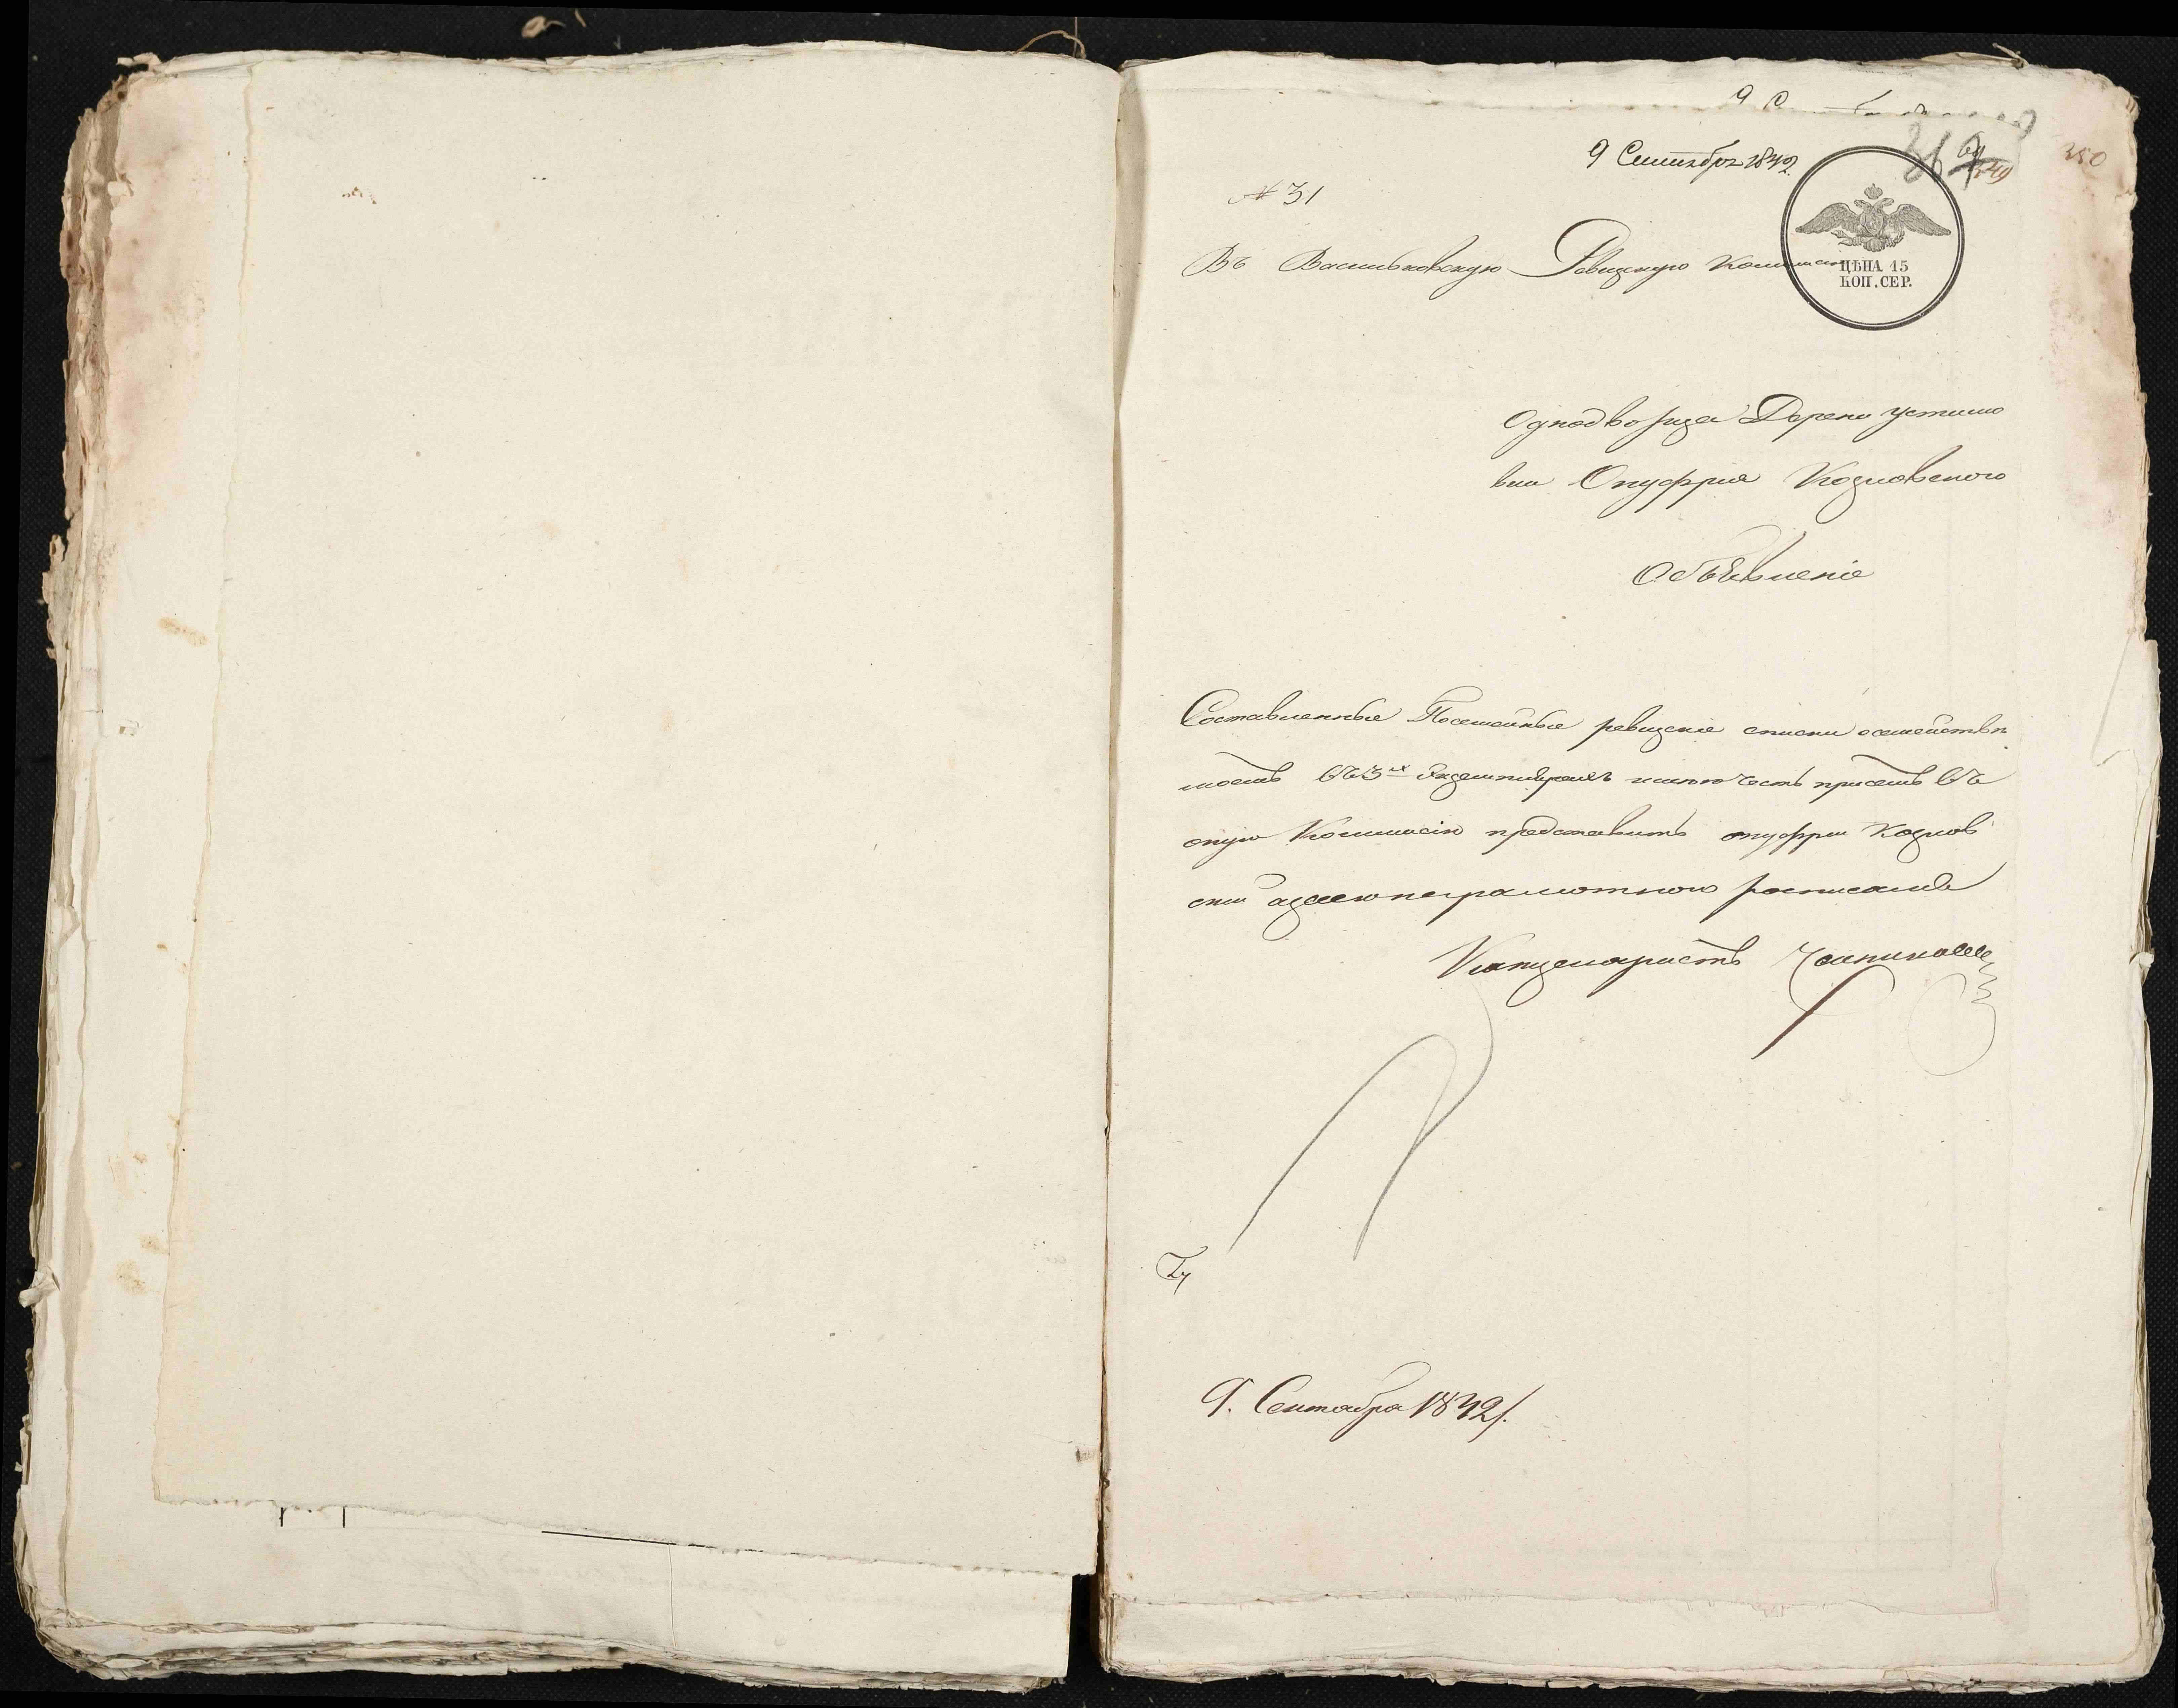 9 Сентября 1842
350
№ 31
Въ Васильковскую Ревизскую Комисію
ЦѢНА 15
КОП. СЕР.
Однодворца Дерени Устимо
вки Онуфрия Козловского
Объявленіе
Составленные Посемейные ревизскіе списки осемействѣ
моемъ въ 3х Экземплярахъ имѣю честь присемъ въ
оную Коммисію представить онуфри Козлов
ски азаегонеграмотного росписался
Канцеляристъ
9. Сентября 1842 г.